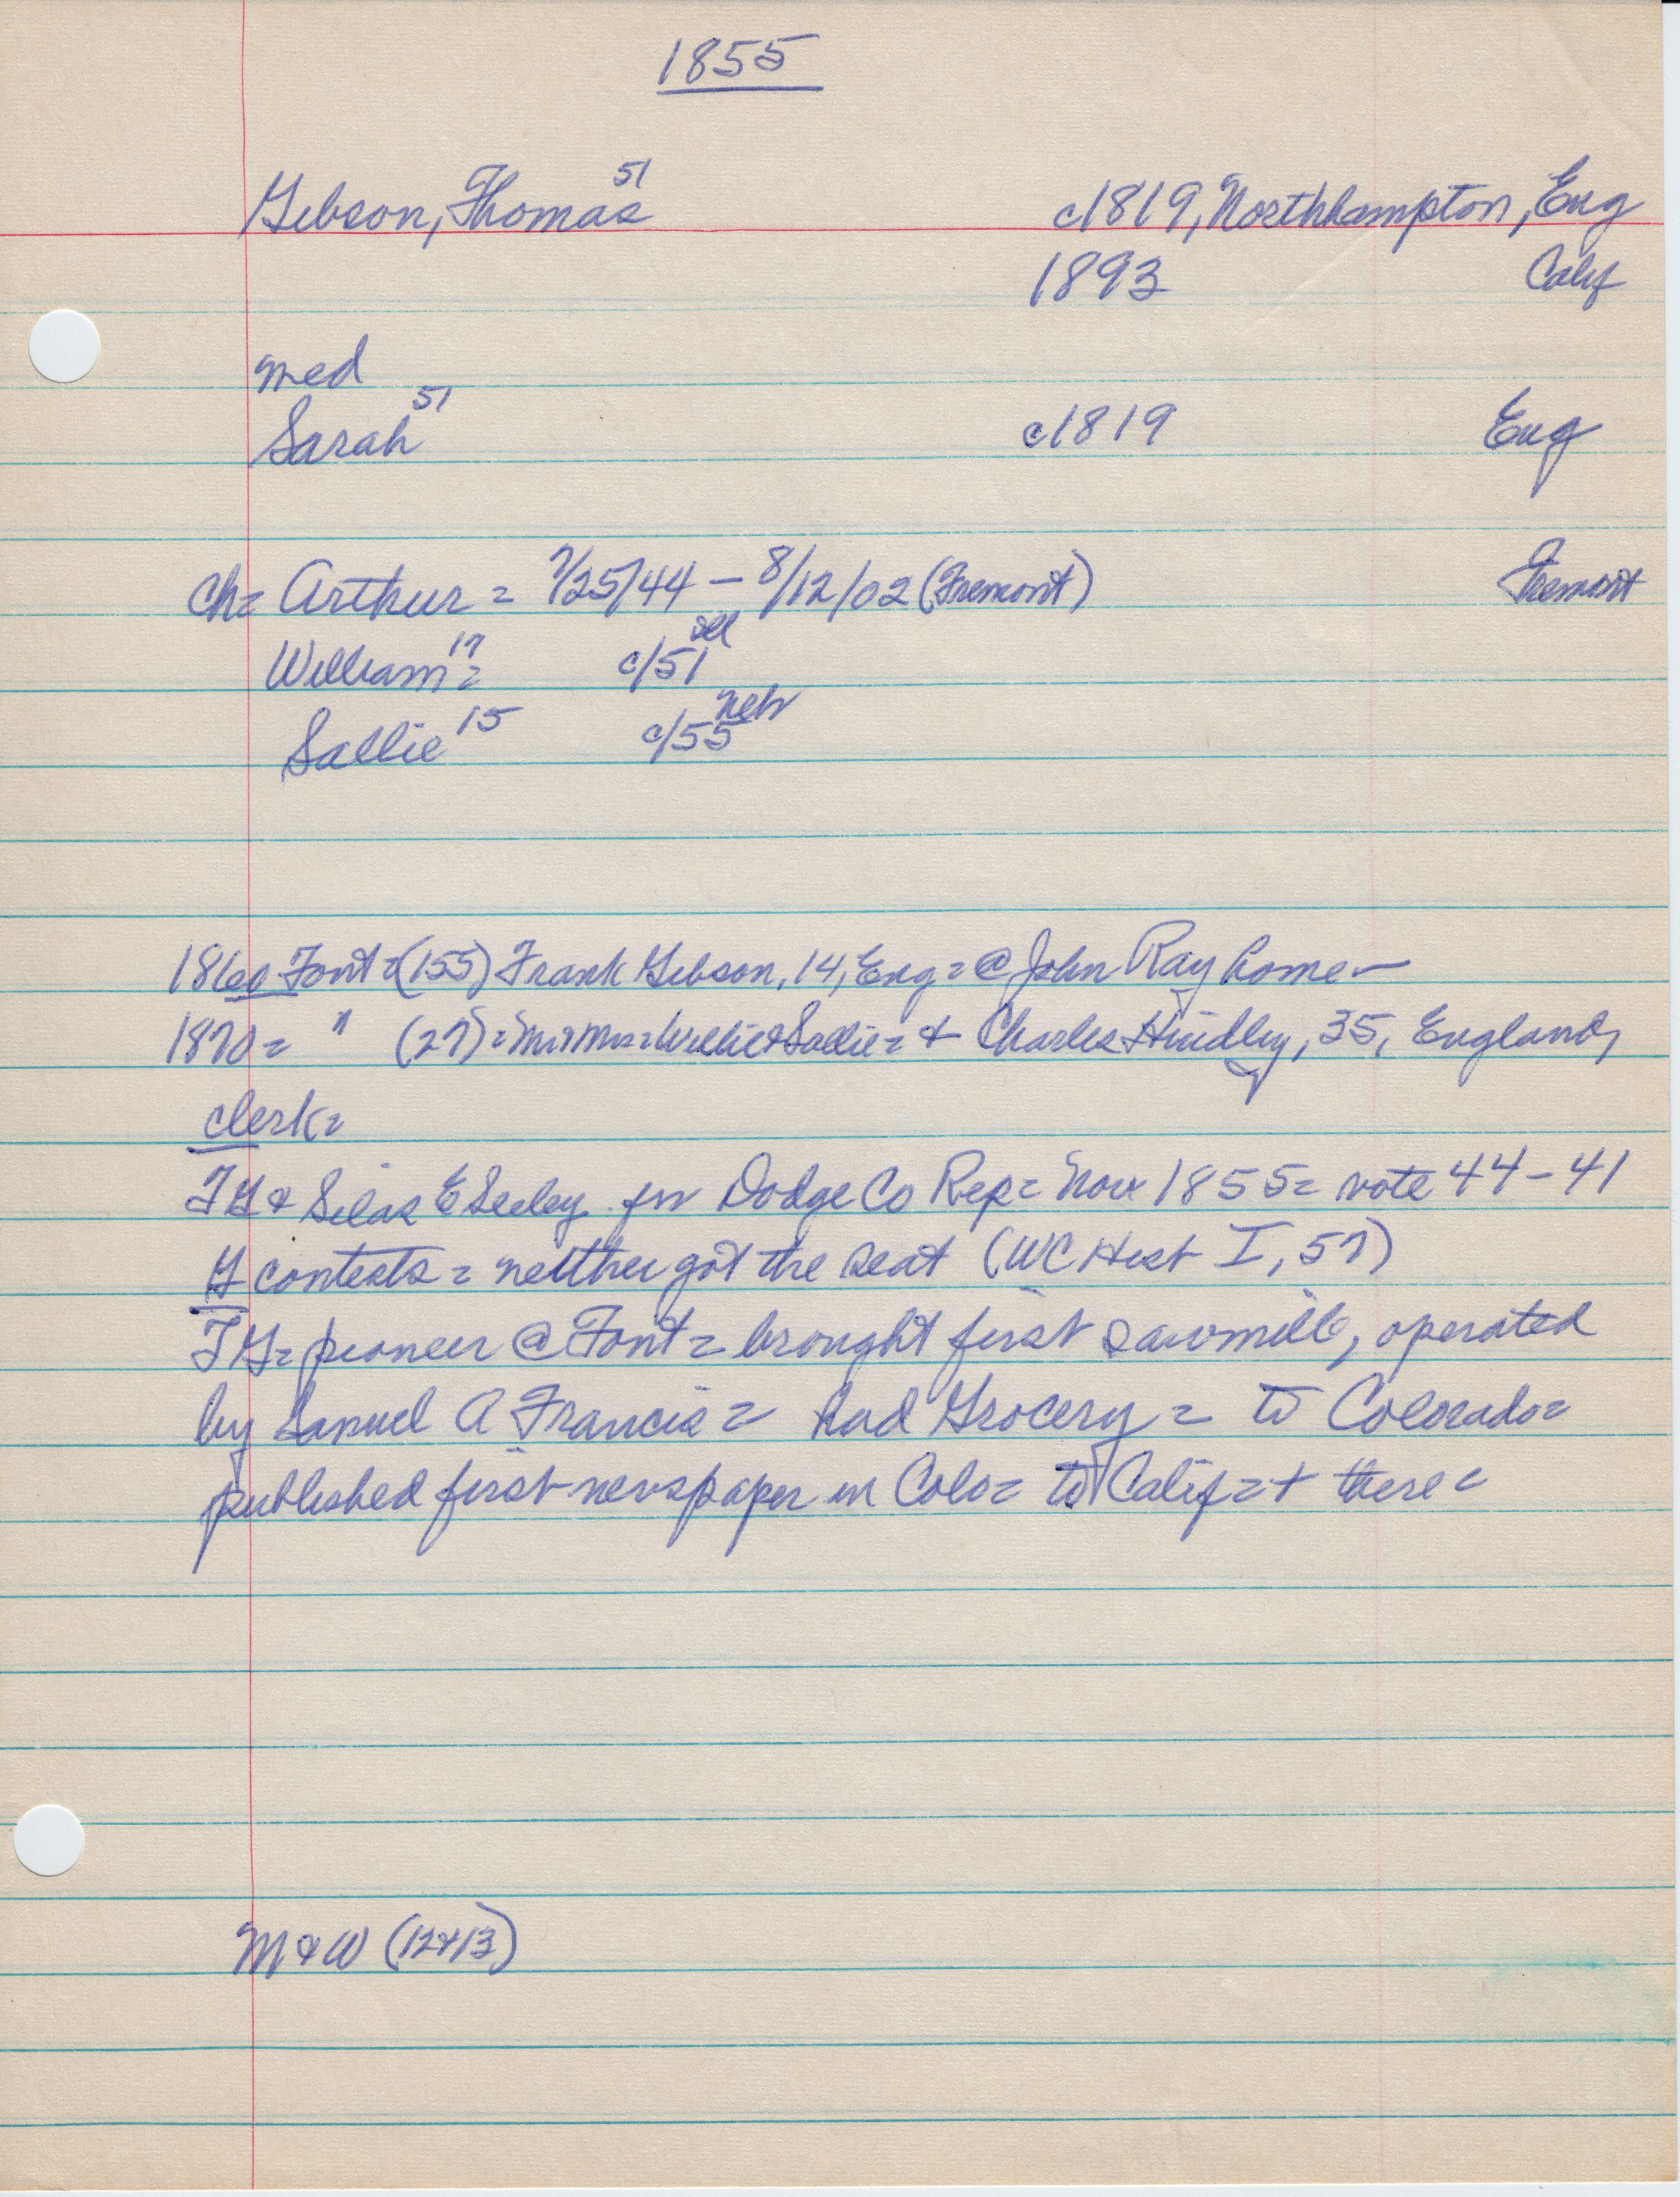 1855
Gibson, Thomas 51 c1819, Northhampton, Eng
1893 Calif
med
Sarah 51 c1819 Eng
ch= Arthur = 7/25/44 – 8/12/02 (Fremont) Fremont
William 17 = c/51 Ill
Sallie 15 c/55 Neb
1860 Font = (155) Frank Gibson, 14, Eng = @ John Ray home –
1870 = " (27) = Mr & Mrs = Willie & Sallie = + Charles Hindley, 35, England,
clerk =
TG & Silas E Seeley for Dodge Co Rep = Nov 1855 = vote 44 – 41
G contests = neither got the seat (WC Hist I, 57)
TG = pioneer @ Font = brought first sawmill, operated
by Samuel A Francis = had Grocery = to Colorado =
published first newspaper in Colo = to Calif = + there =
M & W (12 & 13)